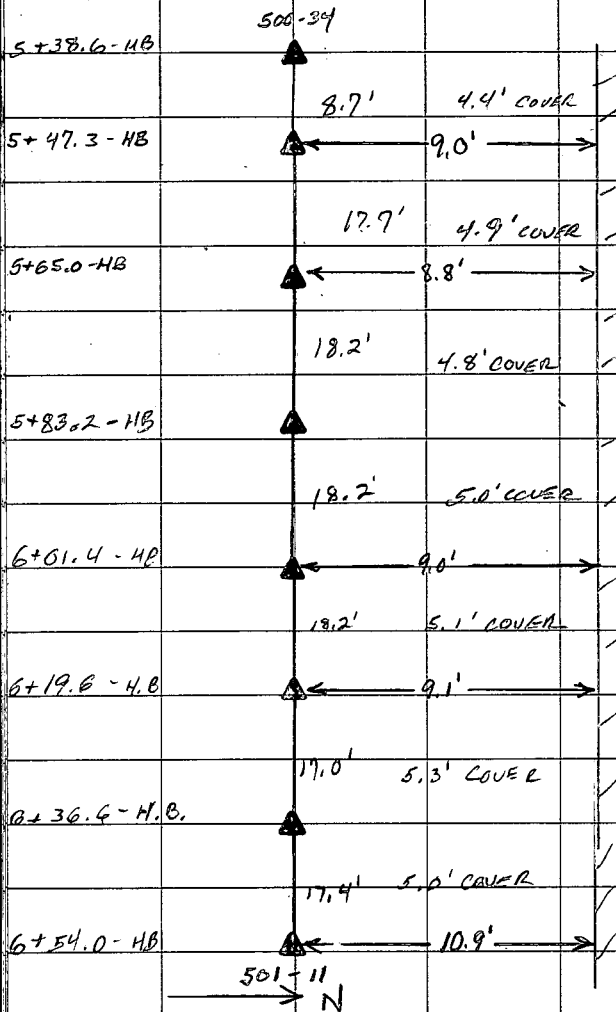 500-34
5+38.6-HB
8.7' 4.4' COVER
5+47.3-HB 9.0'
17.7' 4.9' COVER
5+65.0-HB 8.8'
18.2' 4.8' COVER
5+83.2-HB
18.2' 5.0' COVER
6+01.4-HB 9.0'
18.2' 5.1' COVER
6+19.6-H.B 9.1'
17.0' 5.3' COVER
6+36.6-H.B.
17.4' 5.0' COVER
6+54.0-HB 10.9'
501-11
N